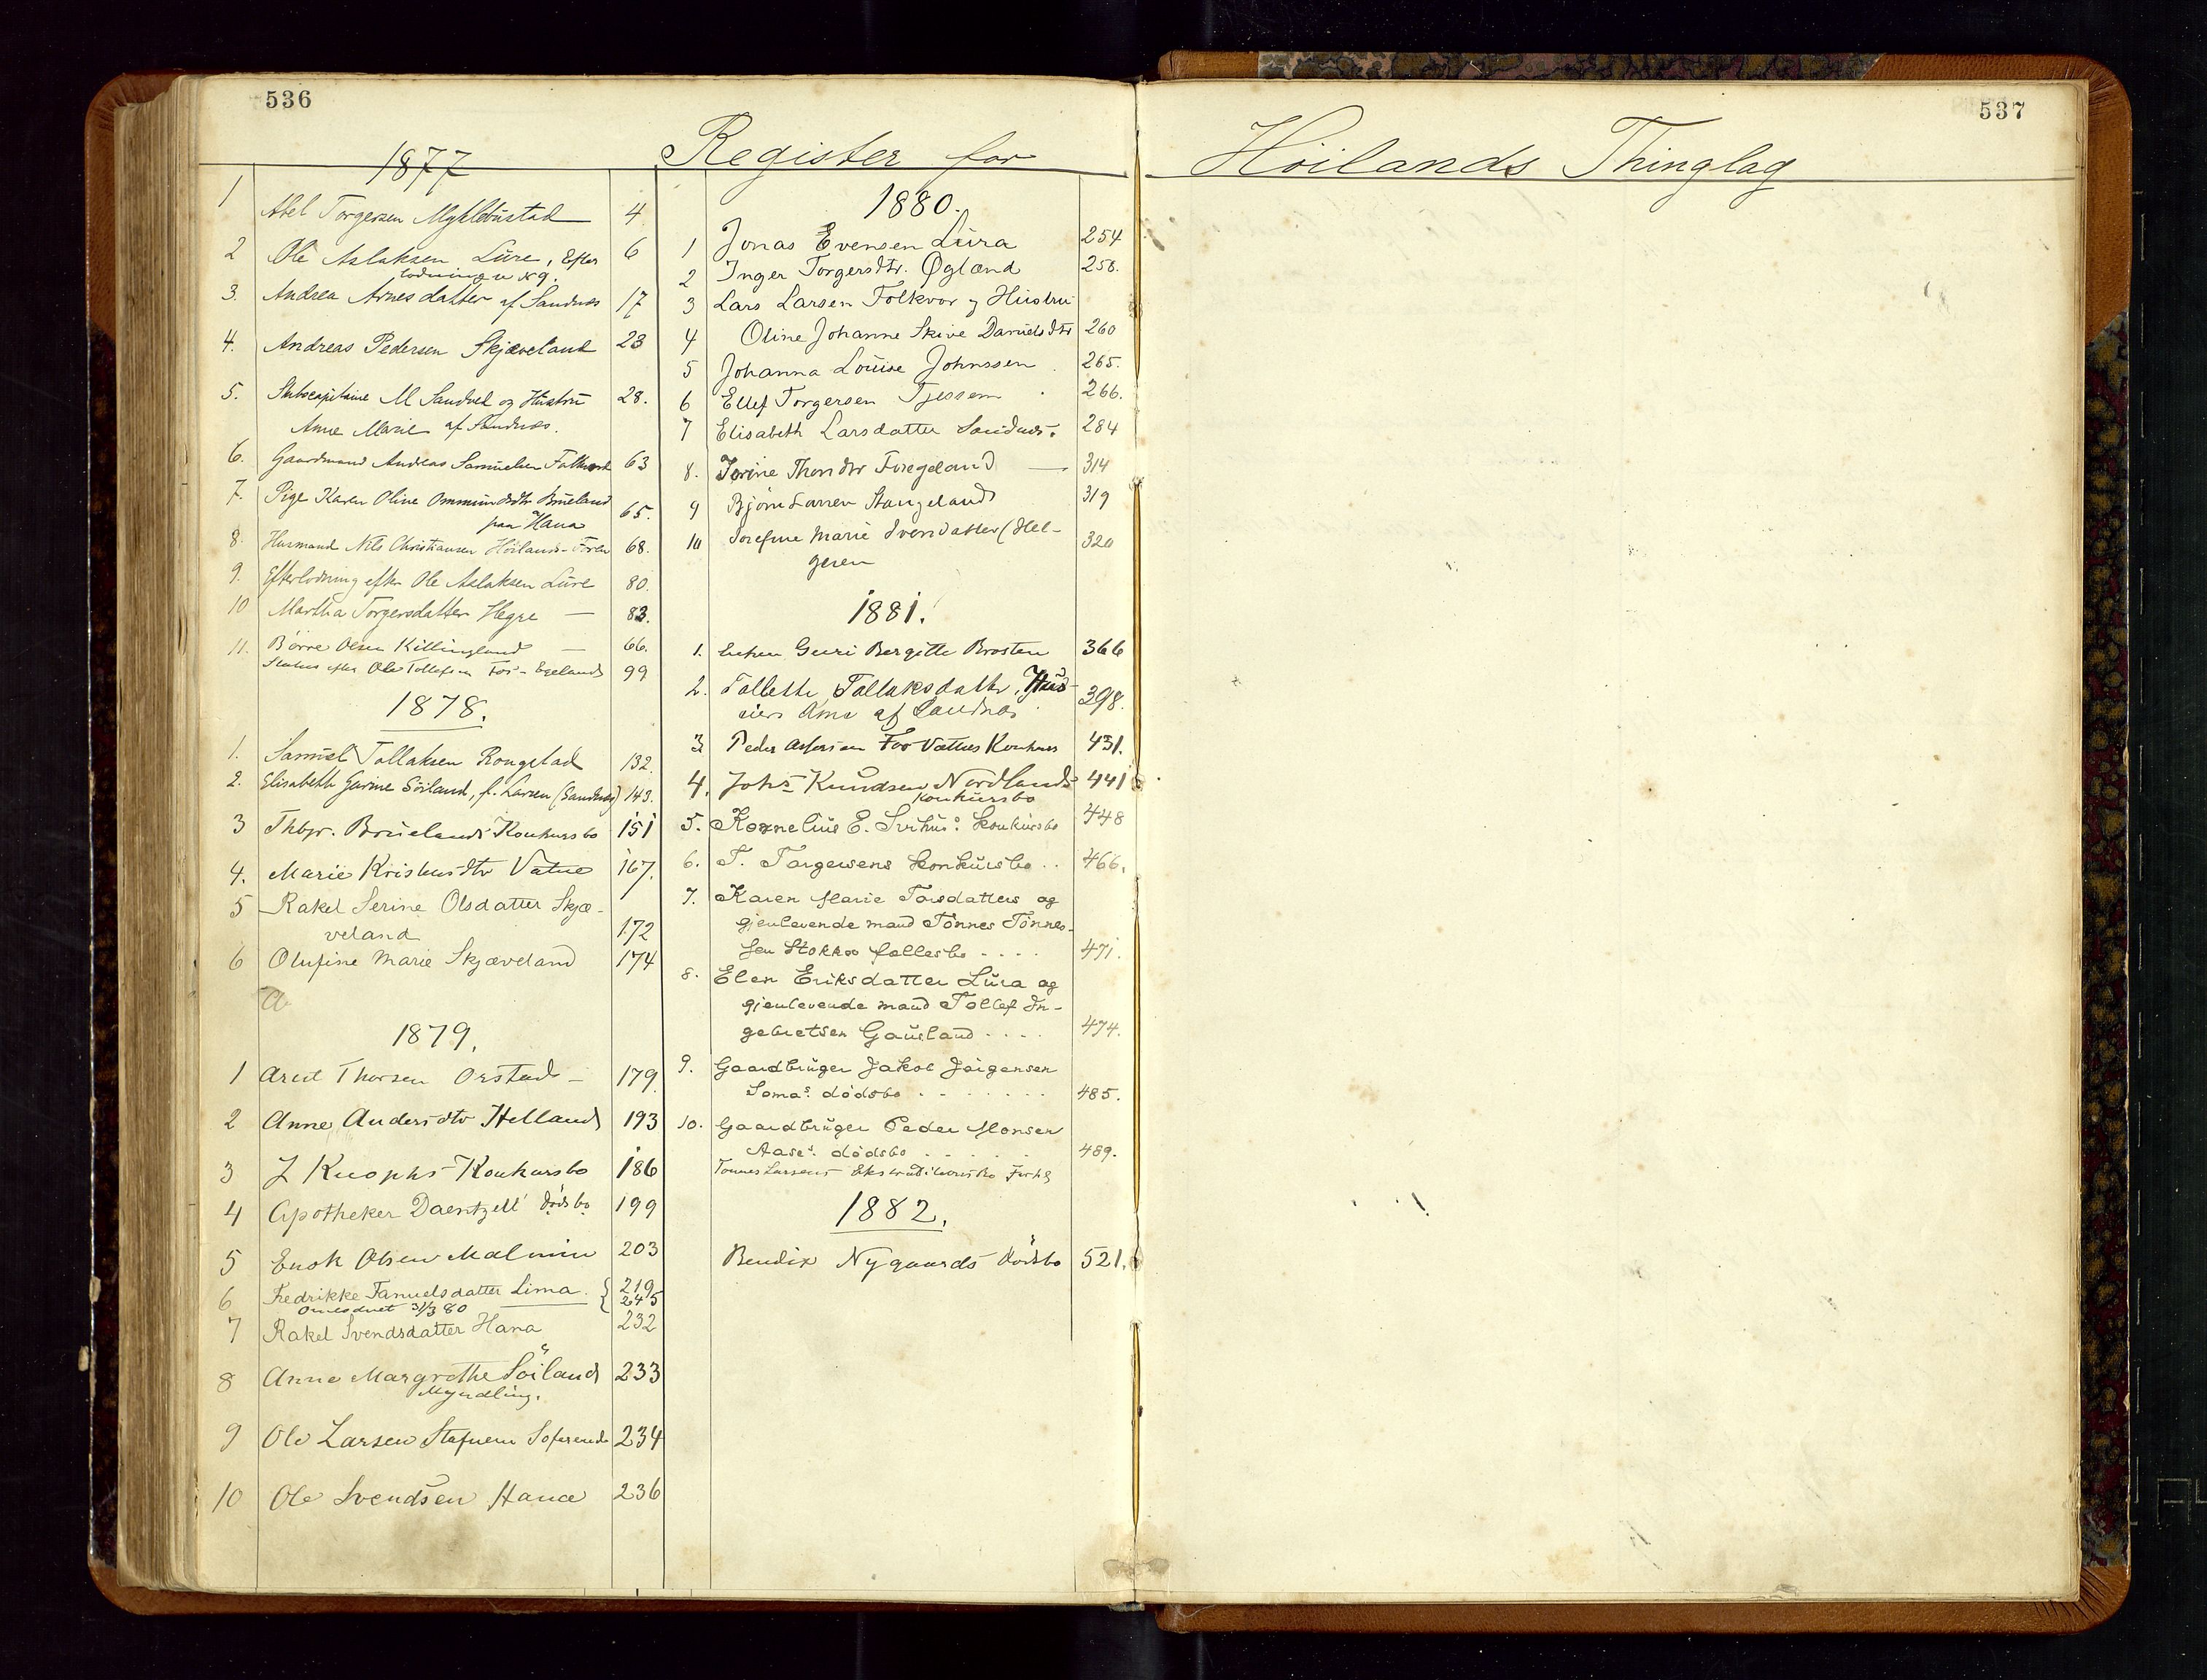 536
537
Register for Höilands Thinglag
1877
1 Abel Torgersen Myklebustad 4
2 Ole Aslaksen Lure, Efter 6
lodning No 9.
3. Andrea Arnesdatter af Sandnæs 17
4. Andreas Pedersen Skjæveland 23
5. Skibscapitaine M Sandvel og Hustru 28.
Anne Marie af Sandnæs.
6. Gaardmand Andreas Samuelsen 63
7. Pige Karen Oline Ommundsdtr Brueland
paa Hana 65.
8. Husmand Nils Christiansen Höiland- 68.
9. Efterlodning efter Ole Aslaksen Lure 80.
10 Martha Torgersdatter Hegre — 83.
11. Börre Olsen Killingland — 66.
efter Ole Tollefsen Fos-Egeland 99
1878.
1. Samuel Tollaksen Rongstad 132.
2. Elisabeth Gurine Söiland, f. Larsen (Sandnes) 143.
3 Thbjr. Bruelands Konkursbo 151
4. Marie Kristensdtr Vatne 167.
5 Rakel Serine Olsdatter Skjæ-
veland 172
6 Olufine Marie Skjæveland 174
a
1879.
1 Arent Thorsen Orstad — 179.
2 Anne Andersdtr Helland 193
3 Z Knophs Konkursbo 186
4 Apotheker Daentzell dödsbo 199
5 Enok Olsen Malmin 203
6 Fredrikke Samuelsdatter Lima. { 219
31/3 80 245
7 Rakel Svendsdatter Hana 232
8 Anne Margrethe Söiland 233
Myndling.
9 Ole Larsen 234
10 Ole Svendsen Hana 236
1880.
1 Jonas Evensen Lura 254
2 Inger Torgersdtr. Øgland 258.
3 Lars Larsen Folkvor og Hustru
4 Oline Johanne Skive Danielsdtr 260
5 Johanna Louise Johnssen . 265.
6 Ellef Torgersen Tjessem . 266.
7 Elisabeth Larsdatter Sandnes. 284
8. Thorsdtr — 314
9 Björn Larsen Stangeland 319
10 Josefine Marie Svensdatter (Hel- 320
gesen
1881.
1. Enken Guri Bergitte Brosten 366
2. Tollette Tollaksdatter, Hus-
af Sandnæs 398.
3. Peder Konkurs 431.
4. Johs Knudsen Nordlands 441
Konkursbo
5. Kornelius E. konkursbo 448
6. T. Torgersens konkursbo .. 466.
7. Karen Marie Torsdatters og
gjenlevende mand Tönnes Tönnes-
sen Stokka fællesbo .... 471.
8. Elen Eriksdatter Lura og
gjenlevende mand Tollef In-
gebretsen Gausland .... 474.
9. Gaardbruger Jakob Jörgensen
Somas dödsbo ....... 485.
10. Gaardbruger Peder Monsen
Aases dödsbo ...... 489.
Tönnes Larsens
1882.
Bendix Nygaards dödsbo 521.